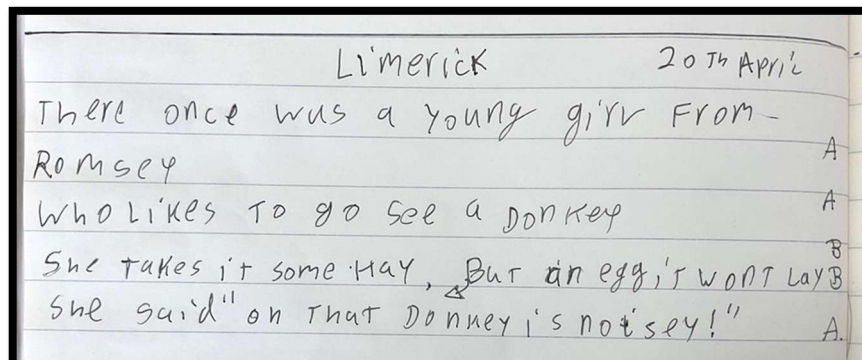 Limerick 20Th April
There once was a young girl From
Romsey A
Who Likes To go see a Donkey A
B
She Takes it some Hay, But an egg it wont Lay B
She said "oh That Donkey is noisey!" A.